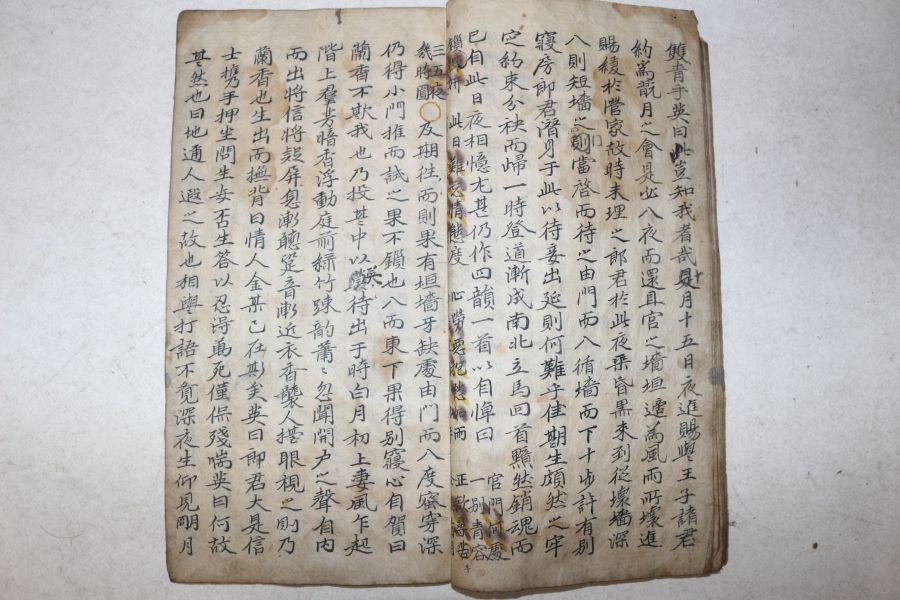 雙青乎英曰此豈知我者哉是月十五日夜進賜與王子諸君
約爲翫月之會是必八夜而還且官之墻垣邊爲風雨所壞進
賜緩於營家故時未理之郎君於此夜乘昏黑來到從壞墻深
八則短墻之則當啓而待之由門而八循墻而下十步許有別
寢房郎君潛身于此以待妾出延則何難乎佳期生頗然之牢
定約束分袂而歸一時登道漸成南北立馬回首黯然銷魂而
已自此日夜相憶尤甚仍作四韻一首以自悼曰 官門何處
一別青容
鎖 此日難忘情態度 心勞
三五夜
幾時圓○及期往而則果有垣墻牙缺處由門而八度窓穿深
仍得小門推而試之果不鎖也八而東下果得別寢心自賀曰
蘭香不欺我也乃投其中以英待出于時白月初上凄風乍起
階上羣芳暗香浮動庭前綠竹踈韵蕭〻忽聞開户之聲自内
而出將信將疑屏息漸聽跫音漸近衣香襲人擡眼視之則乃
蘭香也生出而撫背曰情人金某已在斯矣英曰郎君大是信
士携手押坐問生安否生答以忍淂萬死僅保殘喘英曰何故
其然也曰地邇人遐之故也相與打語不覔深夜生仰見明月